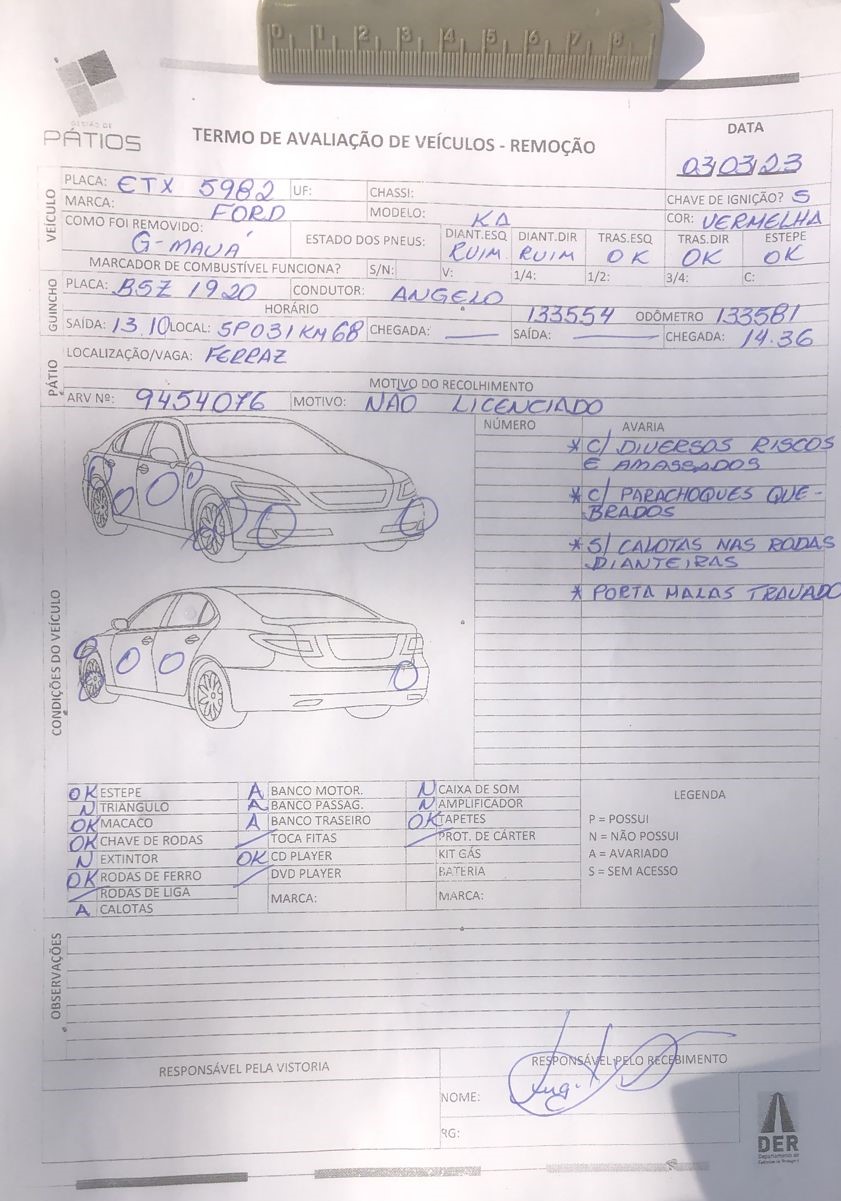 0 1 2 3 4 5 6 7 8
GESTÃO DE
PÁTIOS
TERMO DE AVALIAÇÃO DE VEÍCULOS - REMOÇÃO
DATA
03/03/23
VEÍCULO
PLACA: ETX 5982 UF: CHASSI: CHAVE DE IGNIÇÃO? S
MARCA: FORD MODELO: KA COR: VERMELHA
COMO FOI REMOVIDO: G-MAUÁ
ESTADO DOS PNEUS: DIANT.ESQ DIANT.DIR TRAS.ESQ TRAS.DIR ESTEPE
RUIM RUIM OK OK OK
MARCADOR DE COMBUSTÍVEL FUNCIONA? S/N: V: 1/4: 1/2: 3/4: C:
GUINCHO
PLACA: BSZ 1920 CONDUTOR: ANGELO
HORÁRIO 133554 ODÔMETRO 133581
SAÍDA: 13.10 LOCAL: SP031 KM 68 CHEGADA: — SAÍDA: — CHEGADA: 14.36
PÁTIO
LOCALIZAÇÃO/VAGA: FERRAZ
MOTIVO DO RECOLHIMENTO
ARV Nº: 9454076 MOTIVO: NÃO LICENCIADO
CONDIÇÕES DO VEÍCULO
NÚMERO AVARIA
* C/ DIVERSOS RISCOS
E AMASSADOS
* C/ PARACHOQUES QUE-
BRADOS
* S/ CALOTAS NAS RODAS
DIANTEIRAS
* PORTA MALAS TRAVADO
OK ESTEPE
N TRIÂNGULO
OK MACACO
OK CHAVE DE RODAS
N EXTINTOR
OK RODAS DE FERRO
/ RODAS DE LIGA
A CALOTAS
A BANCO MOTOR.
A BANCO PASSAG.
A BANCO TRASEIRO
/ TOCA FITAS
OK CD PLAYER
/ DVD PLAYER
MARCA:
N CAIXA DE SOM
N AMPLIFICADOR
OK TAPETES
/ PROT. DE CÁRTER
KIT GÁS
BATERIA
MARCA:
LEGENDA
P = POSSUI
N = NÃO POSSUI
A = AVARIADO
S = SEM ACESSO
OBSERVAÇÕES
RESPONSÁVEL PELA VISTORIA
RESPONSÁVEL PELO RECEBIMENTO
NOME:
RG:
DER